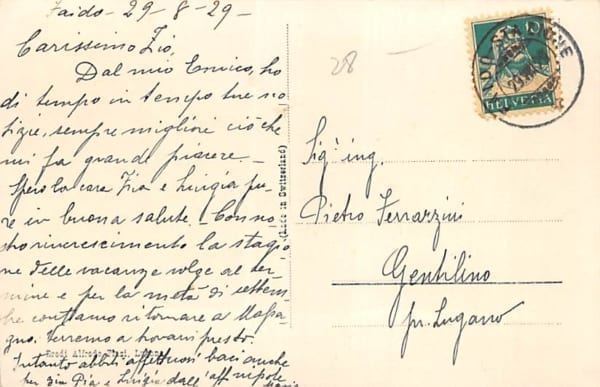 Faido - 29-8-29-
Carissimo Zio,
Dal mio Enrico, ho
di tempo in tempo tue no
tizie, sempre migliori ciò che
mi fa grande piacere. -
Spero la cara Zia e Luigia pu
re in buona salute. - Con no
stro rincrescimento la stagio
ne delle vacanze volge al ter
mine e per la metà di settem
bre contiamo ritornare a Massa
gno. Verremo a trovarvi presto.
Intanto abbiti affettuosi baci anche
per zia Pia e Luigia dall' aff. nipote
Maria
28
Sig. ing.
Pietro Ferrazzini
Gentilino
pr. Lugano
(Made in Switzerland)
Eredi Alfredo
10
HELVETIA